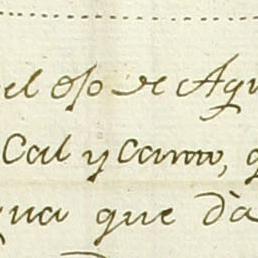 el oso de Agu
Cal y canto, q
gua que dà